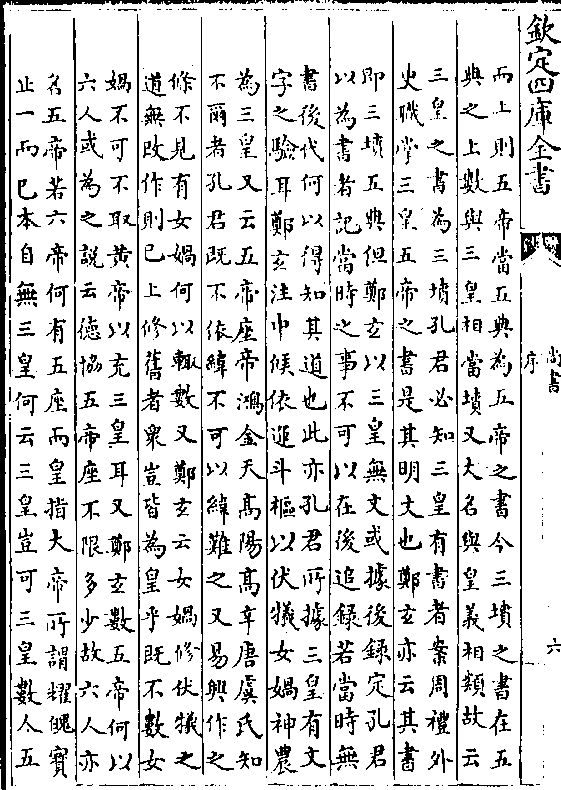 欽定四庫全書
尚書
序
六
而上則五帝當五典為五帝之書今三墳之書在五
典之上數與三皇相當墳又大名與皇義相類故云
三皇之書為三墳孔君必知三皇有書者案周禮外
史職掌三皇五帝之書是其明文也鄭玄亦云其書
即三墳五典但鄭玄以三皇無文或據後録定孔君
以為書者記當時之事不可以在後追録若當時無
書後代何以得知其道也此亦孔君所據三皇有文
字之驗耳鄭玄注中候依運斗樞以伏犧女媧神農
為三皇又云五帝座帝鴻金天高陽高辛唐虞氏知
不爾者孔君既不依緯不可以緯難之又易興作之
條不見有女媧何以輒數又鄭玄云女媧修伏犧之
道無改作則已上修舊者衆豈皆為皇乎既不數女
媧不可不取黄帝以充三皇耳又鄭玄數五帝何以
六人或為之說云德協五帝座不限多少故六人亦
名五帝若六帝何有五座而皇指大帝所謂耀魄寶
止一而已本自無三皇何云三皇豈可三皇數人五